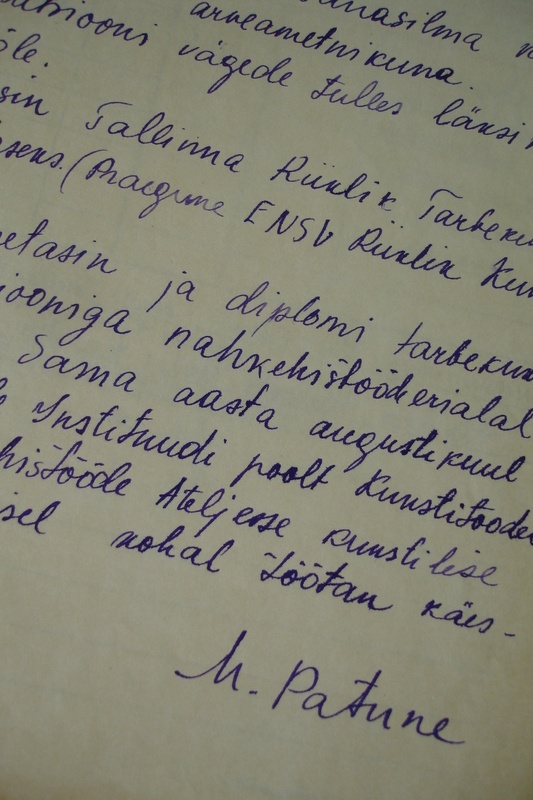 arveametnikuna.
vägede tulles läksi
öle.
sin Tallinna Riiklik Tarbeku
seks. (Praegune ENSV Riiklik Kun
etasin ja diplomi tarbekun
iooniga nahkehistööerialal
Sama aasta augustikuul
Instituudi poolt Kunstitoode
histööde Ateljesse kunstilise
isel kohal töötan käes-
M. Patune